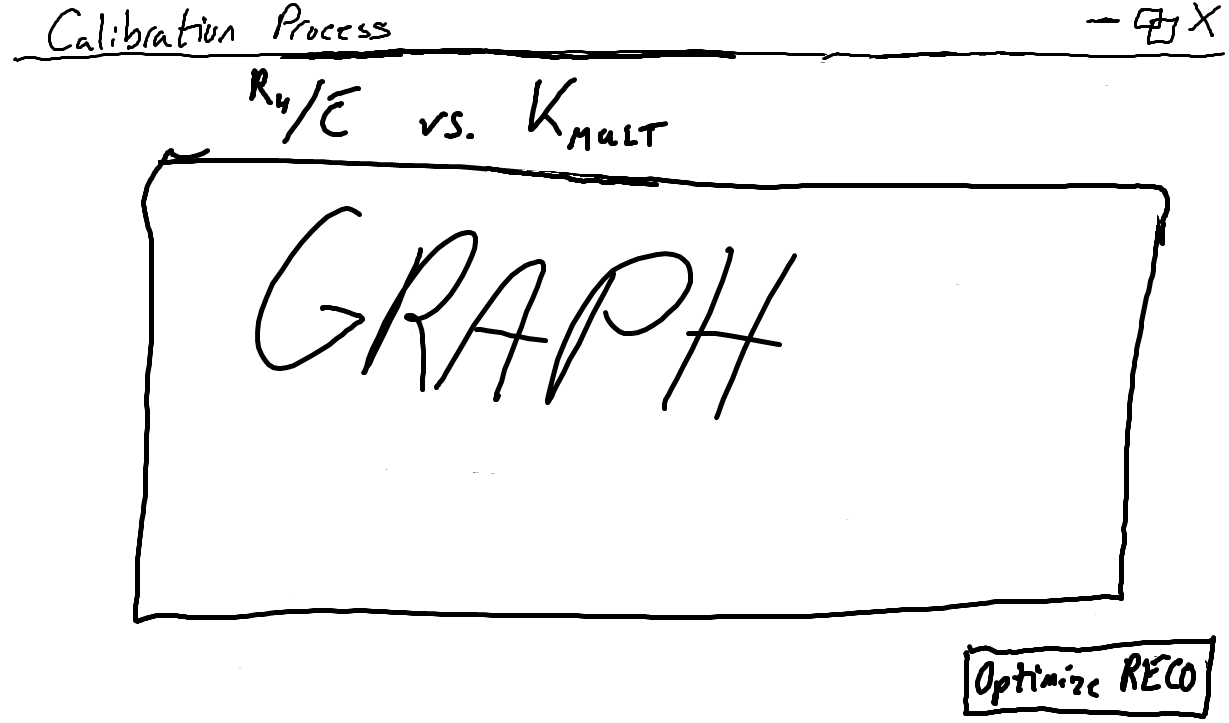 Calibration Process
R4/C vs. KMULT
GRAPH
Optimize RECO